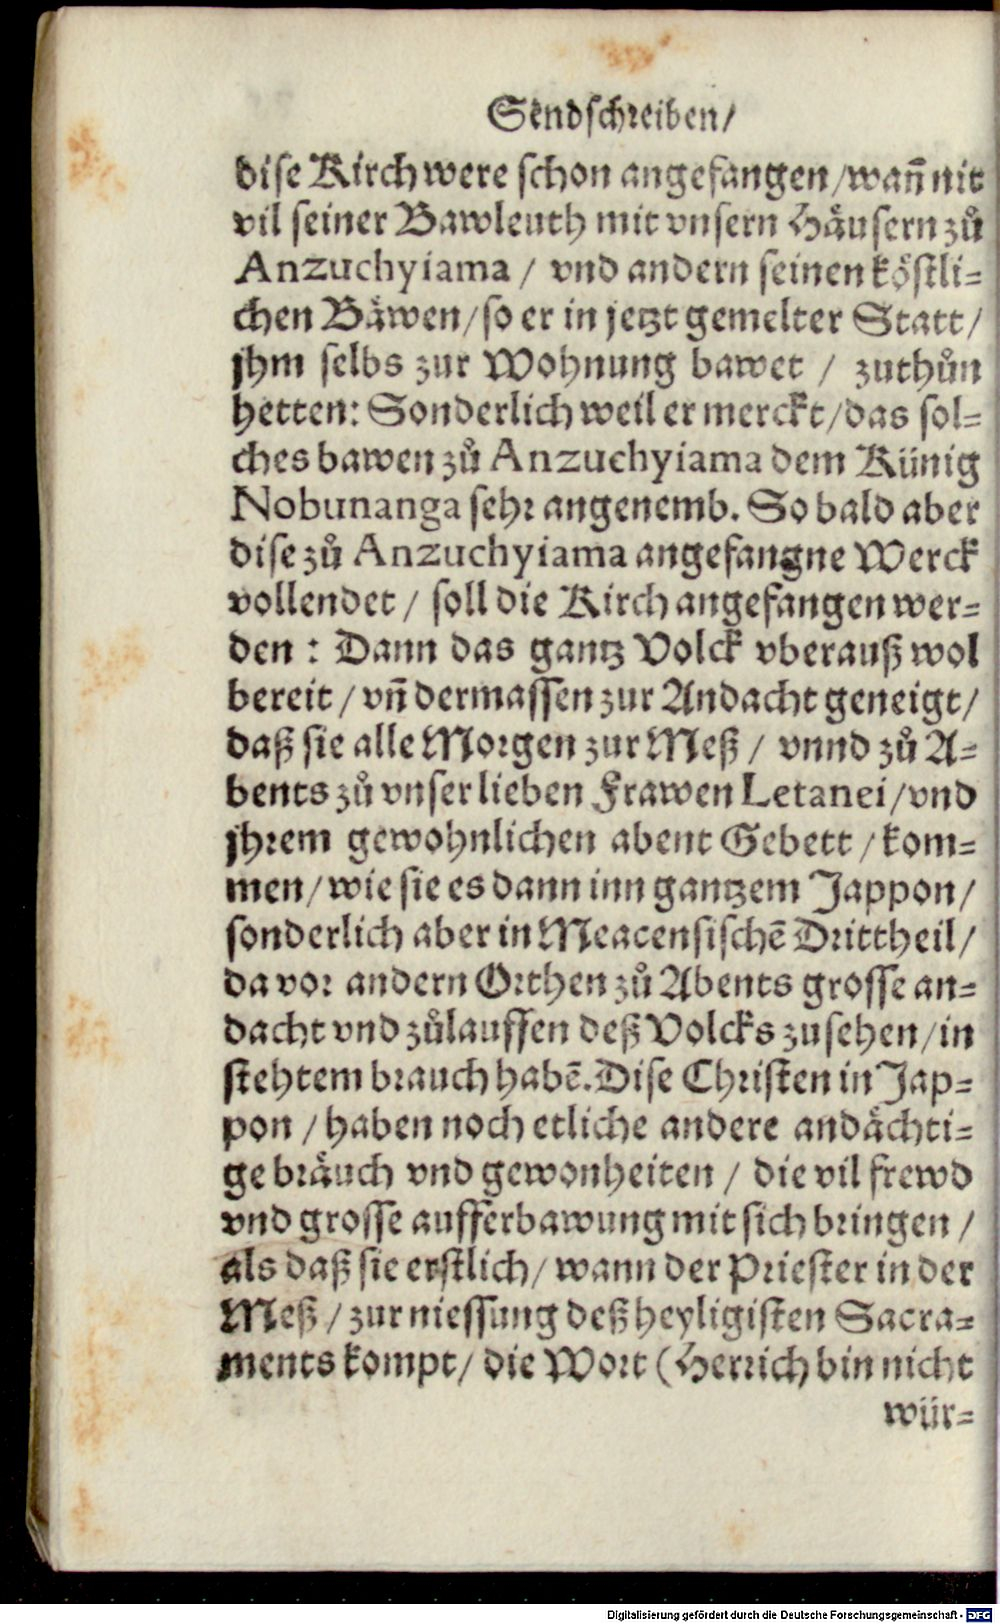 Sendschreiben/
dise Kirch were schon angefangen/wañ nit
vil seiner Bawleuth mit vnsern Häusern zů
Anzuchyiama / vnd andern seinen köstli=
chen Bäwen/so er in jetzt gemelter Statt/
jhm selbs zur Wohnung bawet / zuthůn
hetten: Sonderlich weil er merckt/das sol=
ches bawen zů Anzuchyiama dem Künig
Nobunanga sehr angenemb. So bald aber
dise zů Anzuchyiama angefangne Werck
vollendet / soll die Kirch angefangen wer=
den : Dann das gantz Volck vberauß wol
bereit / vñ dermassen zur Andacht geneigt/
daß sie alle Morgen zur Meß / vnnd zů A=
bents zů vnser lieben Frawen Letanei/vnd
jhrem gewohnlichen abent Gebett / kom=
men/wie sie es dann inn gantzem Jappon/
sonderlich aber in Meacensischē Drittheil/
da vor andern Orthen zů Abents grosse an=
dacht vnd zůlauffen deß Volcks zusehen/in
stehtem brauch habē. Dise Christen in Jap=
pon / haben noch etliche andere andächti=
ge bräuch vnd gewonheiten / die vil frewd
vnd grosse aufferbawung mit sich bringen /
als daß sie erstlich/ wann der Priester in der
Meß / zur niessung deß heyligisten Sacra=
ments kompt/ die Wort (Herr ich bin nicht
wür=
Digitalisierung gefördert durch die Deutsche Forschungsgemeinschaft - DFG